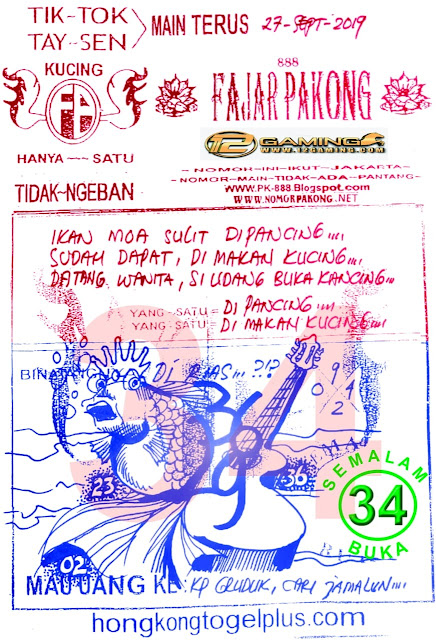 TIK-TOK
TAY-SEN
MAIN TERUS
27-SEPT-2019
KUCING
888
FAJAR PAKONG
12GAMING
WWW.12GAMING.COM
HANYA SATU
-NOMOR-INI-IKUT-JAKARTA-
-NOMOR-MAIN-TIDAK-ADA-PANTANG-
TIDAK-NGEBAN
WWW.PK-888.Blogspot.com
WWW.NOMORPAKONG.NET
IKAN MOA SULIT DIPANCING....
SUDAH DAPAT, DI MAKAN KUCING...
DATANG WANITA, SI UDANG BUKA KANCING...
YANG-SATU = DI PANCING....
YANG-SATU DI MAKAN KUCING...
34
BINATANGNYA
DI ATAS...?!?
9
1
2
23
36
SEMALAM
34
BUKA
02
MAU UANG KE: KP GRUDUK, CARI JAMALUN...
hongkongtogelplus.com